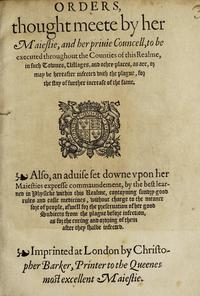 ORDERS,
thought meete by her
Maiestie, and her priuie Councell, to be
executed throughout the Counties of this Realme,
in such Townes, Villages, and other places, as are, or
may be hereafter infected with the plague, for
the stay of further increase of the same.
Also, an aduise set downe vpon her
Maiesties expresse commaundement, by the best lear-
ned in Physicke within this Realme, contayning sundry good
rules and easie medicines, without charge to the meaner
sort of people, aswell for the preseruation of her good
Subiects from the plague before infection,
as for the curing and ordring of them
after they shalbe infected.
Imprinted at London by Christo-
pher Barker, Printer to the Queenes
most excellent Maiestie.